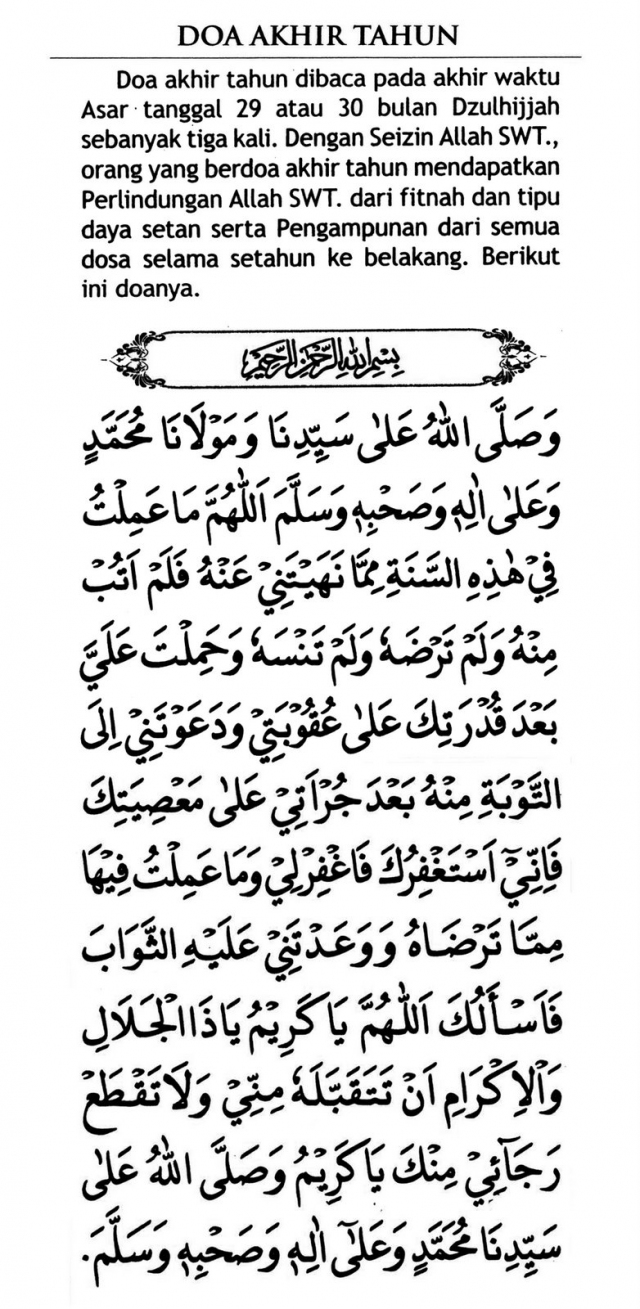 DOA AKHIR TAHUN
Doa akhir tahun dibaca pada akhir waktu
Asar tanggal 29 atau 30 bulan Dzulhijjah
sebanyak tiga kali. Dengan Seizin Allah SWT.,
orang yang berdoa akhir tahun mendapatkan
Perlindungan Allah SWT. dari fitnah dan tipu
daya setan serta Pengampunan dari semua
dosa selama setahun ke belakang. Berikut
ini doanya.
بِسْمِ اللهِ الرَّحْمٰنِ الرَّحِيْمِ
وَصَلَّى اللهُ عَلٰى سَيِّدِنَا وَمَوْلَانَا مُحَمَّدٍ
وَعَلٰى اٰلِهٖ وَصَحْبِهٖ وَسَلَّمَ اَللّٰهُمَّ مَا عَمِلْتُ
فِيْ هٰذِهِ السَّنَةِ مِمَّا نَهَيْتَنِيْ عَنْهُ فَلَمْ اَتُبْ
مِنْهُ وَلَمْ تَرْضَهٗ وَلَمْ تَنْسَهٗ وَحَمِلْتَ عَلَيَّ
بَعْدَ قُدْرَتِكَ عَلٰى عُقُوْبَتِيْ وَدَعَوْتَنِيْ اِلَى
التَّوْبَةِ مِنْهُ بَعْدَ جُرْاَتِيْ عَلٰى مَعْصِيَتِكَ
فَاِنِّيْٓ اَسْتَغْفِرُكَ فَاغْفِرْلِيْ وَمَا عَمِلْتُ فِيْهَا
مِمَّا تَرْضَاهُ وَوَعَدْتَنِيْ عَلَيْهِ الثَّوَابَ
فَاَسْأَلُكَ اَللّٰهُمَّ يَا كَرِيْمُ يَا ذَا الْجَلَالِ
وَالْاِكْرَامِ اَنْ تَتَقَبَّلَهٗ مِنِّيْ وَلَا تَقْطَعْ
رَجَآئِيْ مِنْكَ يَا كَرِيْمُ وَصَلَّى اللهُ عَلٰى
سَيِّدِنَا مُحَمَّدٍ وَعَلٰٓى اٰلِهٖ وَصَحْبِهٖ وَسَلَّمَ.